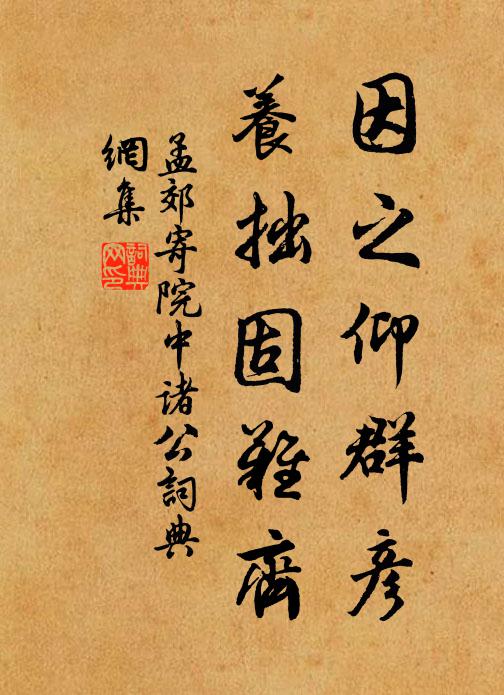 因之仰群彦
養拙固難齊
孟郊寄院中諸公詞典
網集
詞典網印